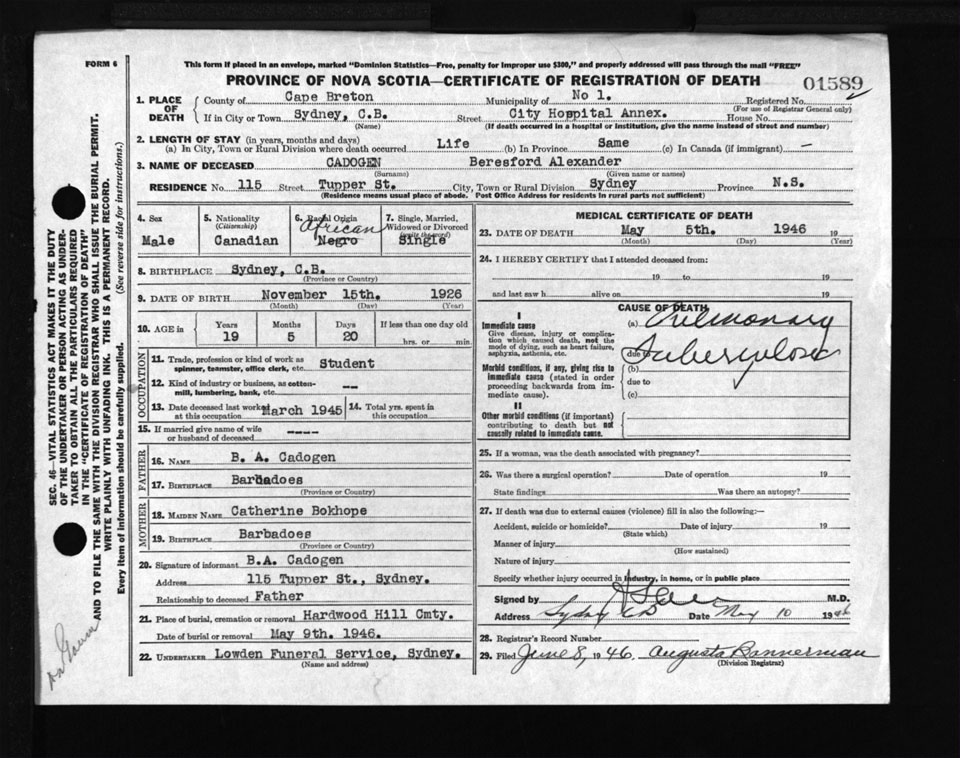 FORM 6
This form if placed in an envelope, marked "Dominion Statistics—Free, penalty for improper use $300," and properly addressed will pass through the mail "FREE"
PROVINCE OF NOVA SCOTIA—CERTIFICATE OF REGISTRATION OF DEATH
01589
1. PLACE OF DEATH { County of Cape Breton Municipality of No 1. Registered No.
(For use of Registrar General only)
If in City or Town Sydney, C.B. Street City Hospital Annex. House No.
(Name) (If death occurred in a hospital or institution, give the name instead of street and number)
2. LENGTH OF STAY (in years, months and days)
(a) In City, Town or Rural Division where death occurred Life (b) In Province Same (c) In Canada (if immigrant) —
3. NAME OF DECEASED CADOGEN Beresford Alexander
(Surname) (Given name or names)
RESIDENCE No. 115 Street Tupper St. City, Town or Rural Division Sydney Province N.S.
(Residence means usual place of abode. Post Office Address for residents in rural parts not sufficient)
4. Sex
Male
5. Nationality
(Citizenship)
Canadian
6. Racial Origin
African
Negro
7. Single, Married,
Widowed or Divorced
(write the word)
Single
8. BIRTHPLACE Sydney, C.B.
(Province or Country)
9. DATE OF BIRTH November 15th. 1926
(Month) (Day) (Year)
10. AGE in Years Months Days If less than one day old
19 5 20 hrs. or min.
OCCUPATION
11. Trade, profession or kind of work as
spinner, teamster, office clerk, etc. Student
12. Kind of industry or business, as cotton-
mill, lumbering, bank, etc. --
13. Date deceased last worked
at this occupation March 1945
14. Total yrs. spent in
this occupation
15. If married give name of wife
or husband of deceased ----
FATHER
16. NAME B. A. Cadogen
17. BIRTHPLACE Barbadoes
(Province or Country)
MOTHER
18. MAIDEN NAME Catherine Bokhope
19. BIRTHPLACE Barbadoes
(Province or Country)
20. Signature of informant B.A. Cadogen
Address 115 Tupper St., Sydney.
Relationship to deceased Father
21. Place of burial, cremation or removal Hardwood Hill Cmty.
Date of burial or removal May 9th. 1946.
22. UNDERTAKER Lowden Funeral Service, Sydney.
(Name and address)
MEDICAL CERTIFICATE OF DEATH
23. DATE OF DEATH May 5th. 1946 19
(Month) (Day) (Year)
24. I HEREBY CERTIFY that I attended deceased from:
19 to 19
and last saw h alive on 19
CAUSE OF DEATH
I
Immediate cause
Give disease, injury or complica-
tion which caused death, not the
mode of dying, such as heart failure,
asphyxia, asthenia, etc.
(a) Pulmonary
due to Tuberculosis
Morbid conditions, if any, giving rise to
immediate cause (stated in order
proceeding backwards from im-
mediate cause).
(b)
due to
(c)
II
Other morbid conditions (if important)
contributing to death but not
causally related to immediate cause.
25. If a woman, was the death associated with pregnancy?
26. Was there a surgical operation? Date of operation 19
State findings Was there an autopsy?
27. If death was due to external causes (violence) fill in also the following:—
Accident, suicide or homicide? Date of injury 19
(State which)
Manner of injury
(How sustained)
Nature of injury
Specify whether injury occurred in industry, in home, or in public place
Signed by M.D.
Address Sydney CB Date May 10 1946
28. Registrar's Record Number
29. Filed June 8, 1946. Augusta Bannerman
(Division Registrar)
SEC. 46—VITAL STATISTICS ACT MAKES IT THE DUTY
OF THE UNDERTAKER OR PERSON ACTING AS UNDER-
TAKER TO OBTAIN ALL THE PARTICULARS REQUIRED
IN THE "CERTIFICATE OF REGISTRATION OF DEATH"
AND TO FILE THE SAME WITH THE DIVISION REGISTRAR WHO SHALL ISSUE THE BURIAL PERMIT.
WRITE PLAINLY WITH UNFADING INK. THIS IS A PERMANENT RECORD.
Every item of information should be carefully supplied. (See reverse side for instructions.)